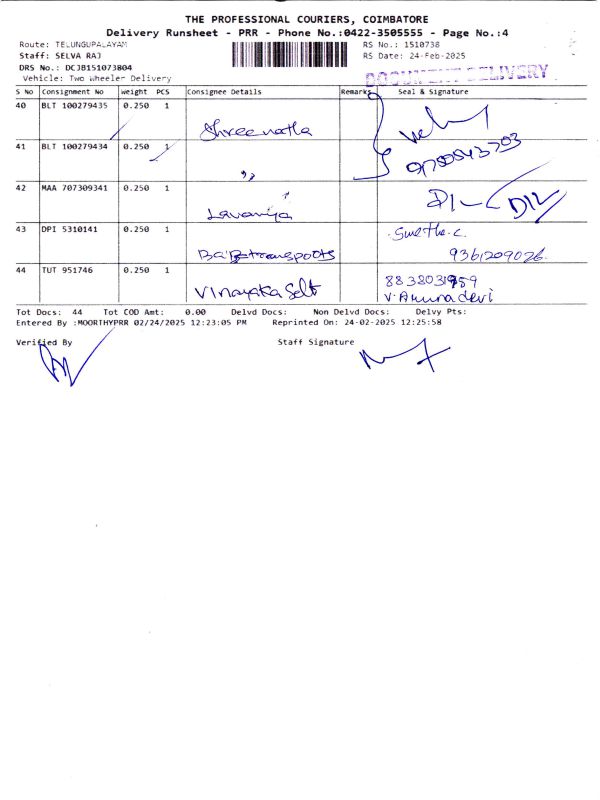 THE PROFESSIONAL COURIERS, COIMBATORE
Delivery Runsheet - PRR - Phone No.:0422-3505555 - Page No.:4
Route: TELUNGUPALAYAM RS No.: 1510738
Staff: SELVA RAJ RS Date: 24-Feb-2025
DRS No.: DCJB151073804
Vehicle: Two Wheeler Delivery
DOCUMENT DELIVERY
S No Consignment No Weight PCS Consignee Details Remarks Seal & Signature
40 BLT 100279435 0.250 1 Shreenatha
41 BLT 100279434 0.250 1 ,,
42 MAA 707309341 0.250 1 Lavanya
43 DPI 5310141 0.250 1 9361209026
44 TUT 951746 0.250 1 Vinayaka 8838031959
Tot Docs: 44 Tot COD Amt: 0.00 Delvd Docs: Non Delvd Docs: Delvy Pts:
Entered By :MOORTHYPRR 02/24/2025 12:23:05 PM Reprinted On: 24-02-2025 12:25:58
Verified By Staff Signature